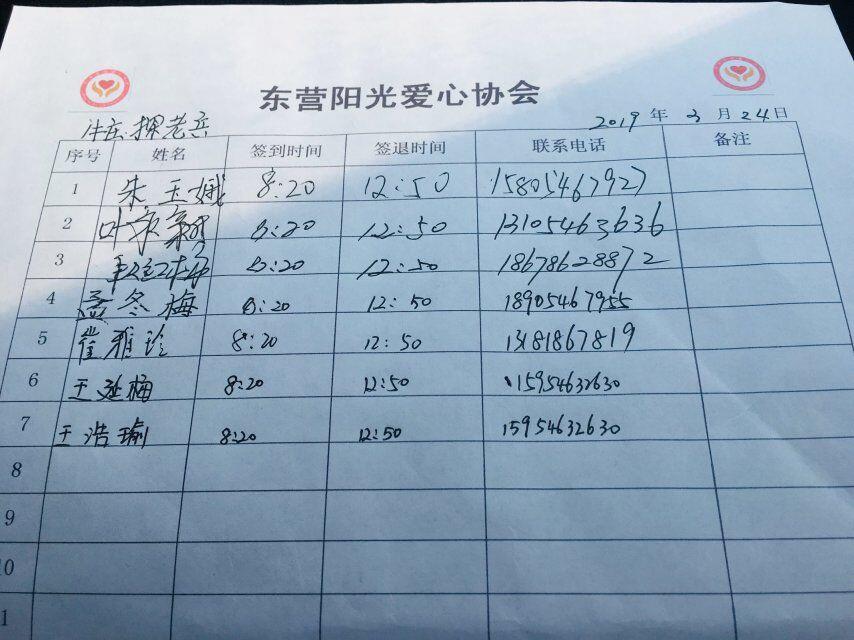 东营阳光爱心协会
牛庄探老兵 2019年3月24日
序号 姓名 签到时间 签退时间 联系电话 备注
1 朱玉娥 8:20 12:50 15805467927
2 叶永 8:20 12:50 13105463636
3 8:20 12:50 18678628872
4 孟冬梅 8:20 12:50 18905467955
5 崔雅玲 8:20 12:50 13181867819
6 王延梅 8:20 12:50 15954632630
7 王浩瑜 8:20 12:50 15954632630
8
9
10
1